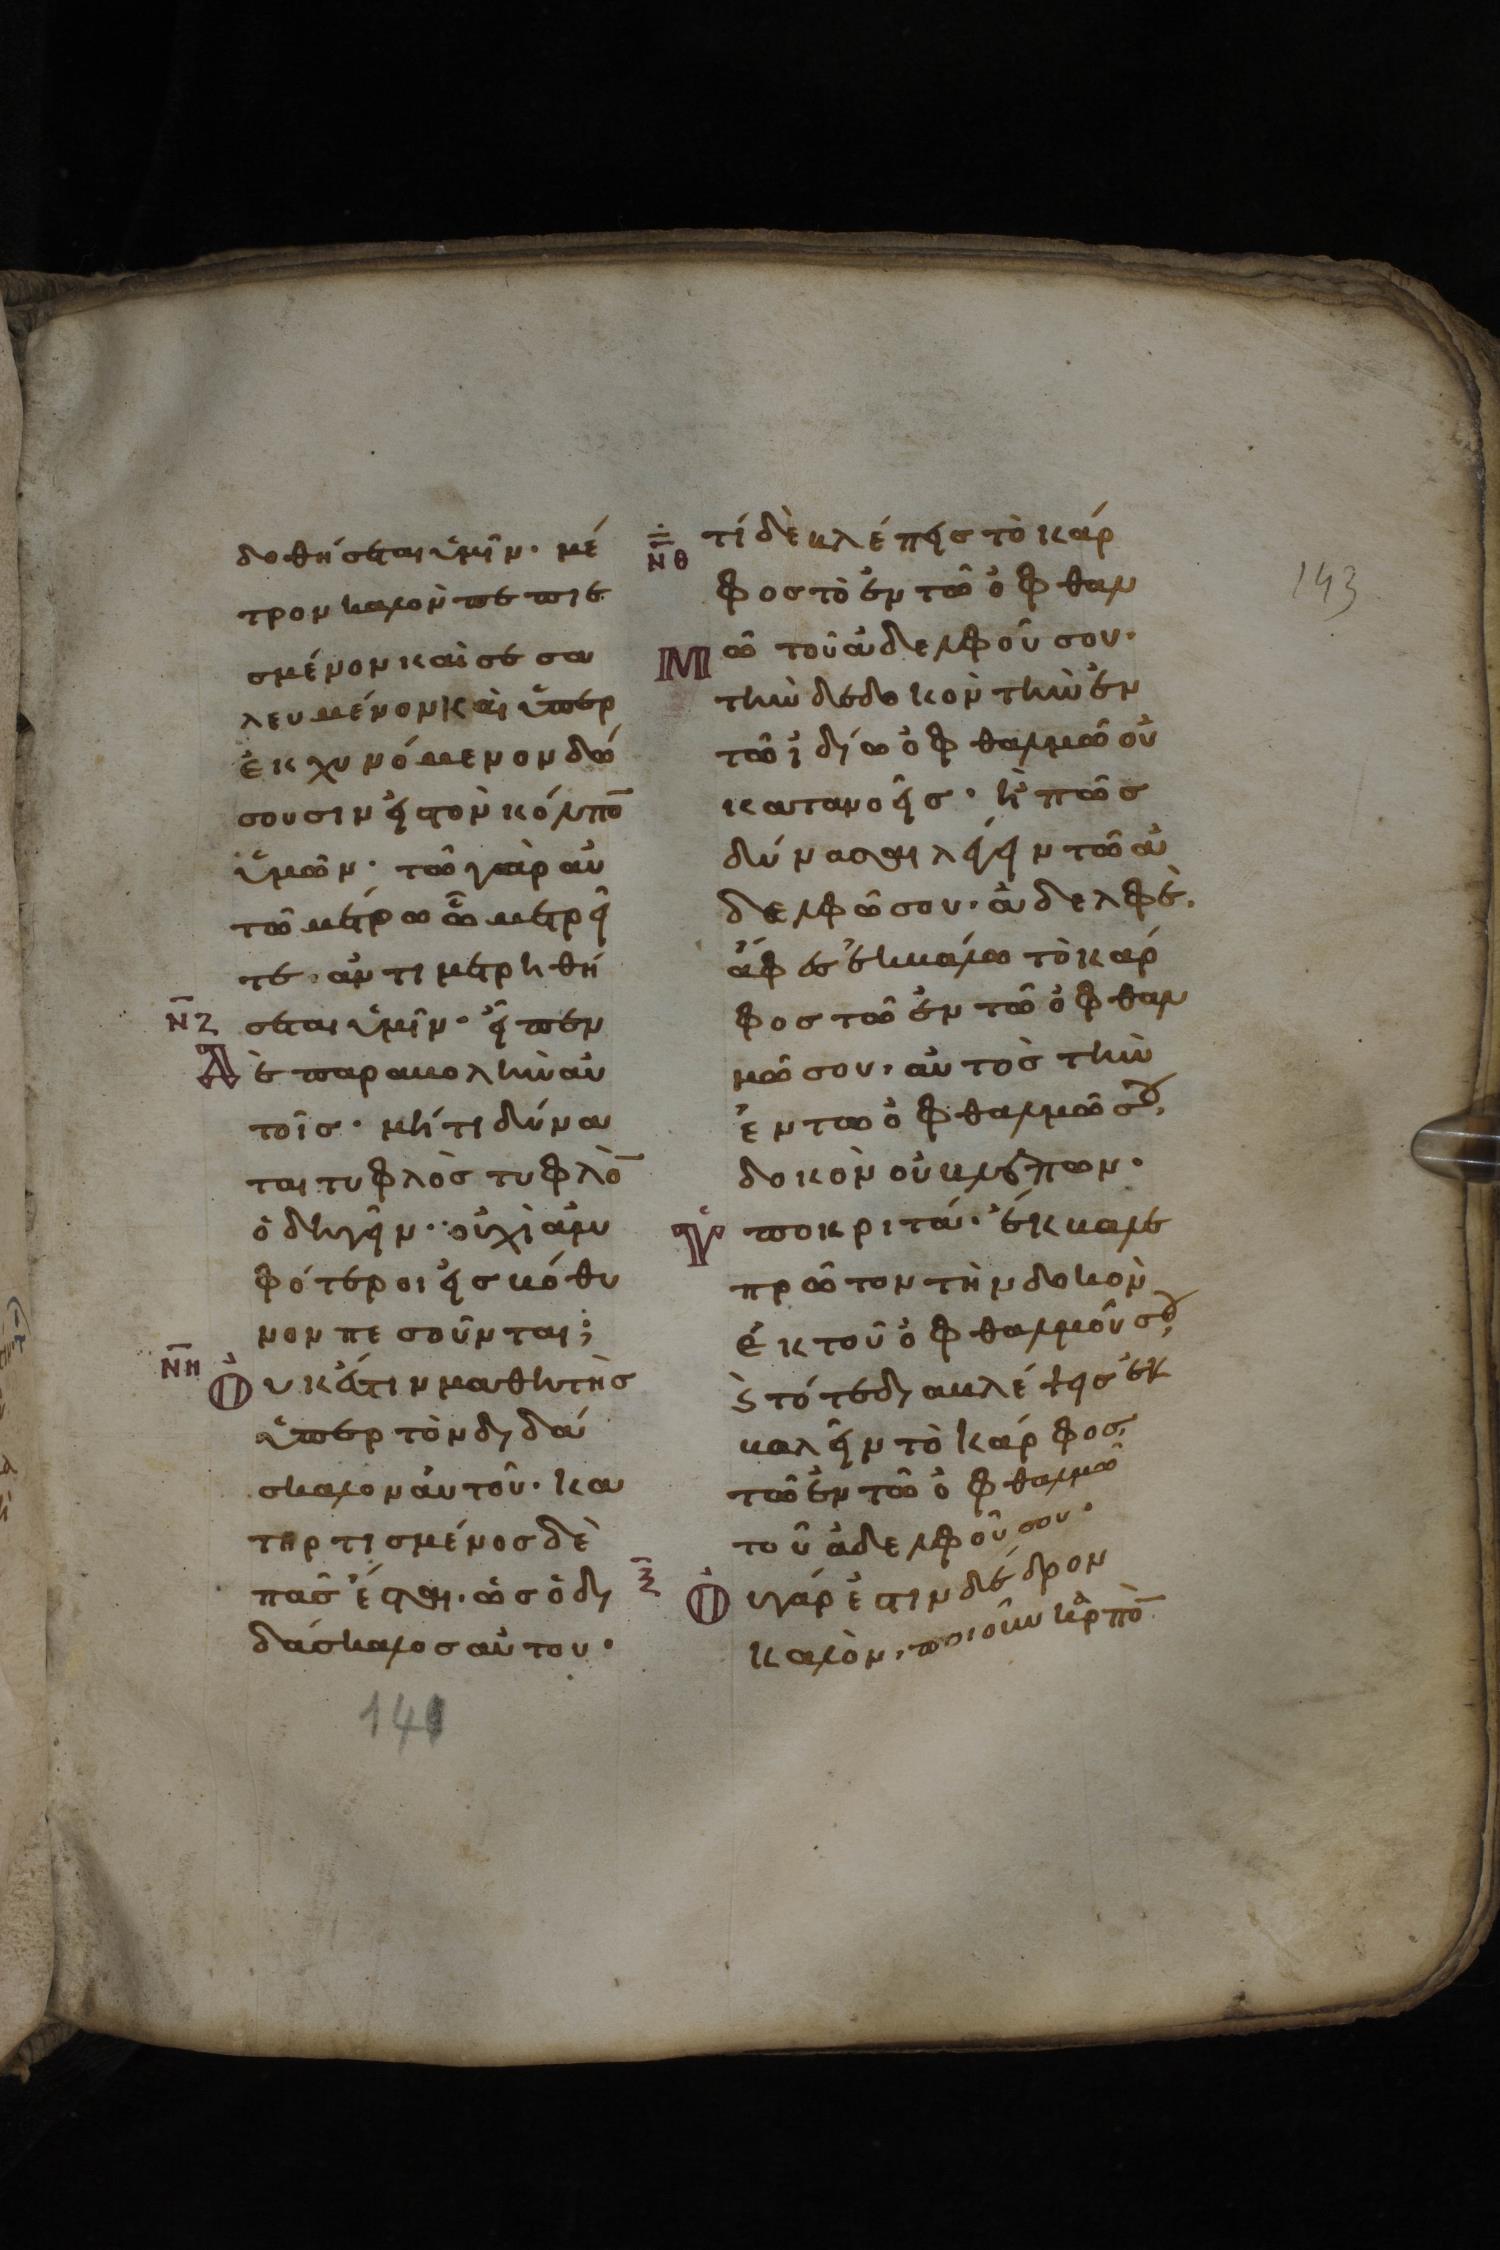 δοθήσεται ὑμῖν· μέ
τρον καλὸν πεπιε
σμένον καὶ σεσα
λευμένον καὶ ὑπερ
ἐκχυνόμενον δώ
σουσιν εἰς τὸν κόλπο̅
ὑμῶν· τῶ γὰρ αὐ
τῶ μέτρω ὧ μετρεῖ
τε· ἀντιμετρηθή
Ν̅Ζ
σεται ὑμῖν· εἶπεν
Δ
ὲ παραβολὴν αὐ
τοῖς· μήτι δύνα
ται τυφλὸς τυφλὸ̅
ὁδηγεῖν· οὐχὶ ἀμ
φότεροι εἰς βόθυ
νον πεσοῦνται;
Ν̅Η
Οὐκ ἔστιν μαθητὴς
ὑπερ τὸν διδά
σκαλον αὐτοῦ· κα
τηρτισμένος δὲ
πᾶς ἔσται· ὡς ὁ δι
δάσκαλος αὐτου·
141
Ν̅Θ
τί δὲ βλέπεις τὸ κάρ
φος τὸ ἐν τῶ ὀφθαλ
Μ
ῶ τοῦ ἀδελφοῦ σου·
τὴν δὲ δοκὸν τὴν ἐν
τῶ ἰδίω ὀφθαλμῶ οὐ
κατανοεῖς· ἢ πῶς
δύνασαι λέγειν τῶ ἀ
δελφῶ σου· ἀδελφὲ·
ἄφες ἐκβάλω τὸ κάρ
φος τῶ ἐν τῶ ὀφθαλ
μῶ σου· αὐτὸς τὴν
ἐν τῶ ὀφθαλμῶ σου·
δοκὸν οὐ βλέπων·
Ὑποκριτά· ἔκβαλε
πρῶτον τὴν δοκὸν
ἐκ τοῦ ὀφθαλμοῦ σου·
ϗ τότε διαβλέψεις ἐκ
βαλεῖν τὸ κάρφος·
τῶ ἐν τῶ ὀφθαλμῶ
τοῦ ἀδελφοῦ σου·
Ξ̅
Οὐ γάρ ἐστιν δένδρον
καλὸν· ποιοῦν καρπὸ̅
143